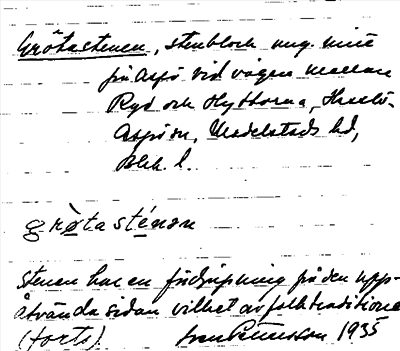 Grötastenen, stenblock ung. mitt
på Aspö vid vägen mellan
Ryd och Hyttorna, Hasslö-
Aspö sn, Medelstads hd,
Blek. l.
grötasténen
Stenen har en fördjupning på den upp-
åtvända sidan vilket av folktraditione
(forts). Sven Petersson 1935